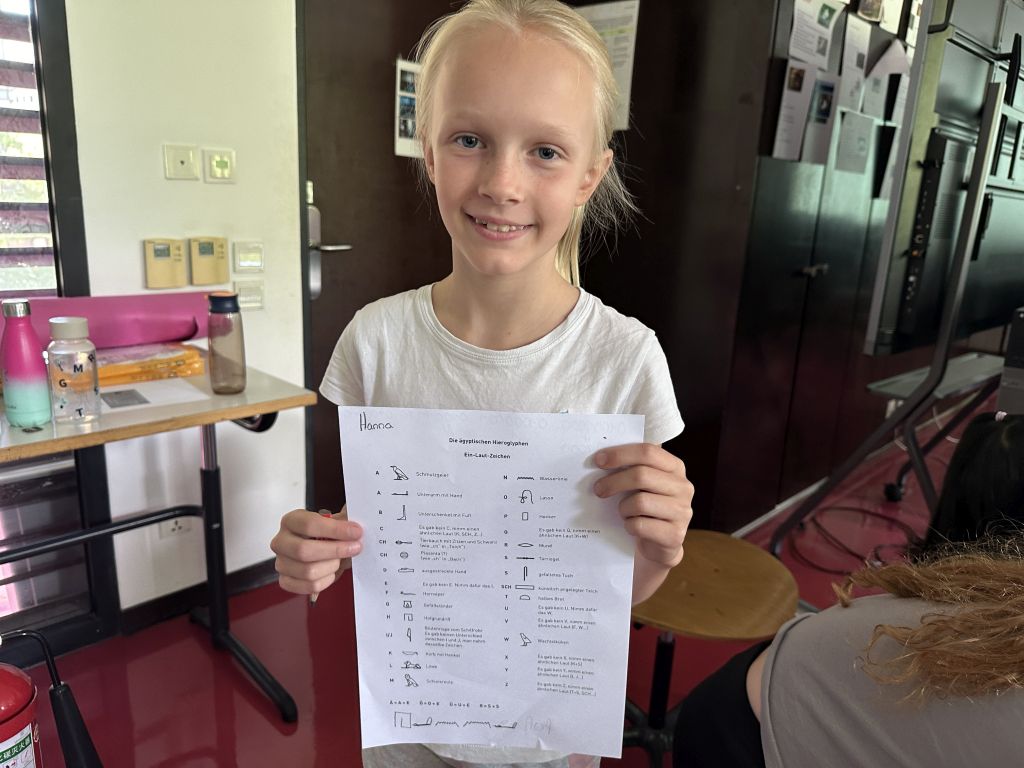 Hanna
Die ägyptischen Hieroglyphen
Ein-Laut-Zeichen
A Schmutzgeier
A Unterarm mit Hand
B Unterschenkel mit Fuß
C Es gab kein C, nimm einen
ähnlichen Laut (K, SCH, Z...)
CH Tierbauch mit Zitzen und Schwanz
(wie „ch“ in „Teich“)
CH Plazenta (?)
(wie „ch“ in „Bach“)
D ausgestreckte Hand
E Es gab kein E. Nimm dafür das I.
F Hornviper
G Gefäßständer
H Hofgrundriß
I/J
Es gab keinen Unterschied
zwischen I und J, man nahm
dasselbe Zeichen.
K Korb mit Henkel
L Löwe
M Schleiereule
N Wasserlinie
O Lasso
P Hocker
Q Es gab kein Q, nimm einen
ähnlichen Laut (K+W)
R Mund
S Türriegel
S gefaltetes Tuch
SCH künstlich angelegter Teich
T halbes Brot
U Es gab kein U. Nimm dafür
das W.
V Es gab kein V, nimm einen
ähnlichen Laut (F, W...)
W Wachtelküken
X Es gab kein X, nimm einen
ähnlichen Laut (K+S)
Y Es gab kein Y, nimm einen
ähnlichen Laut (I, J...)
Z Es gab kein Z, nimm einen
ähnlichen Laut (T+S, SCH...)
Ä=A+E Ö=O+E Ü=U+E ß=S+S
M
G
T